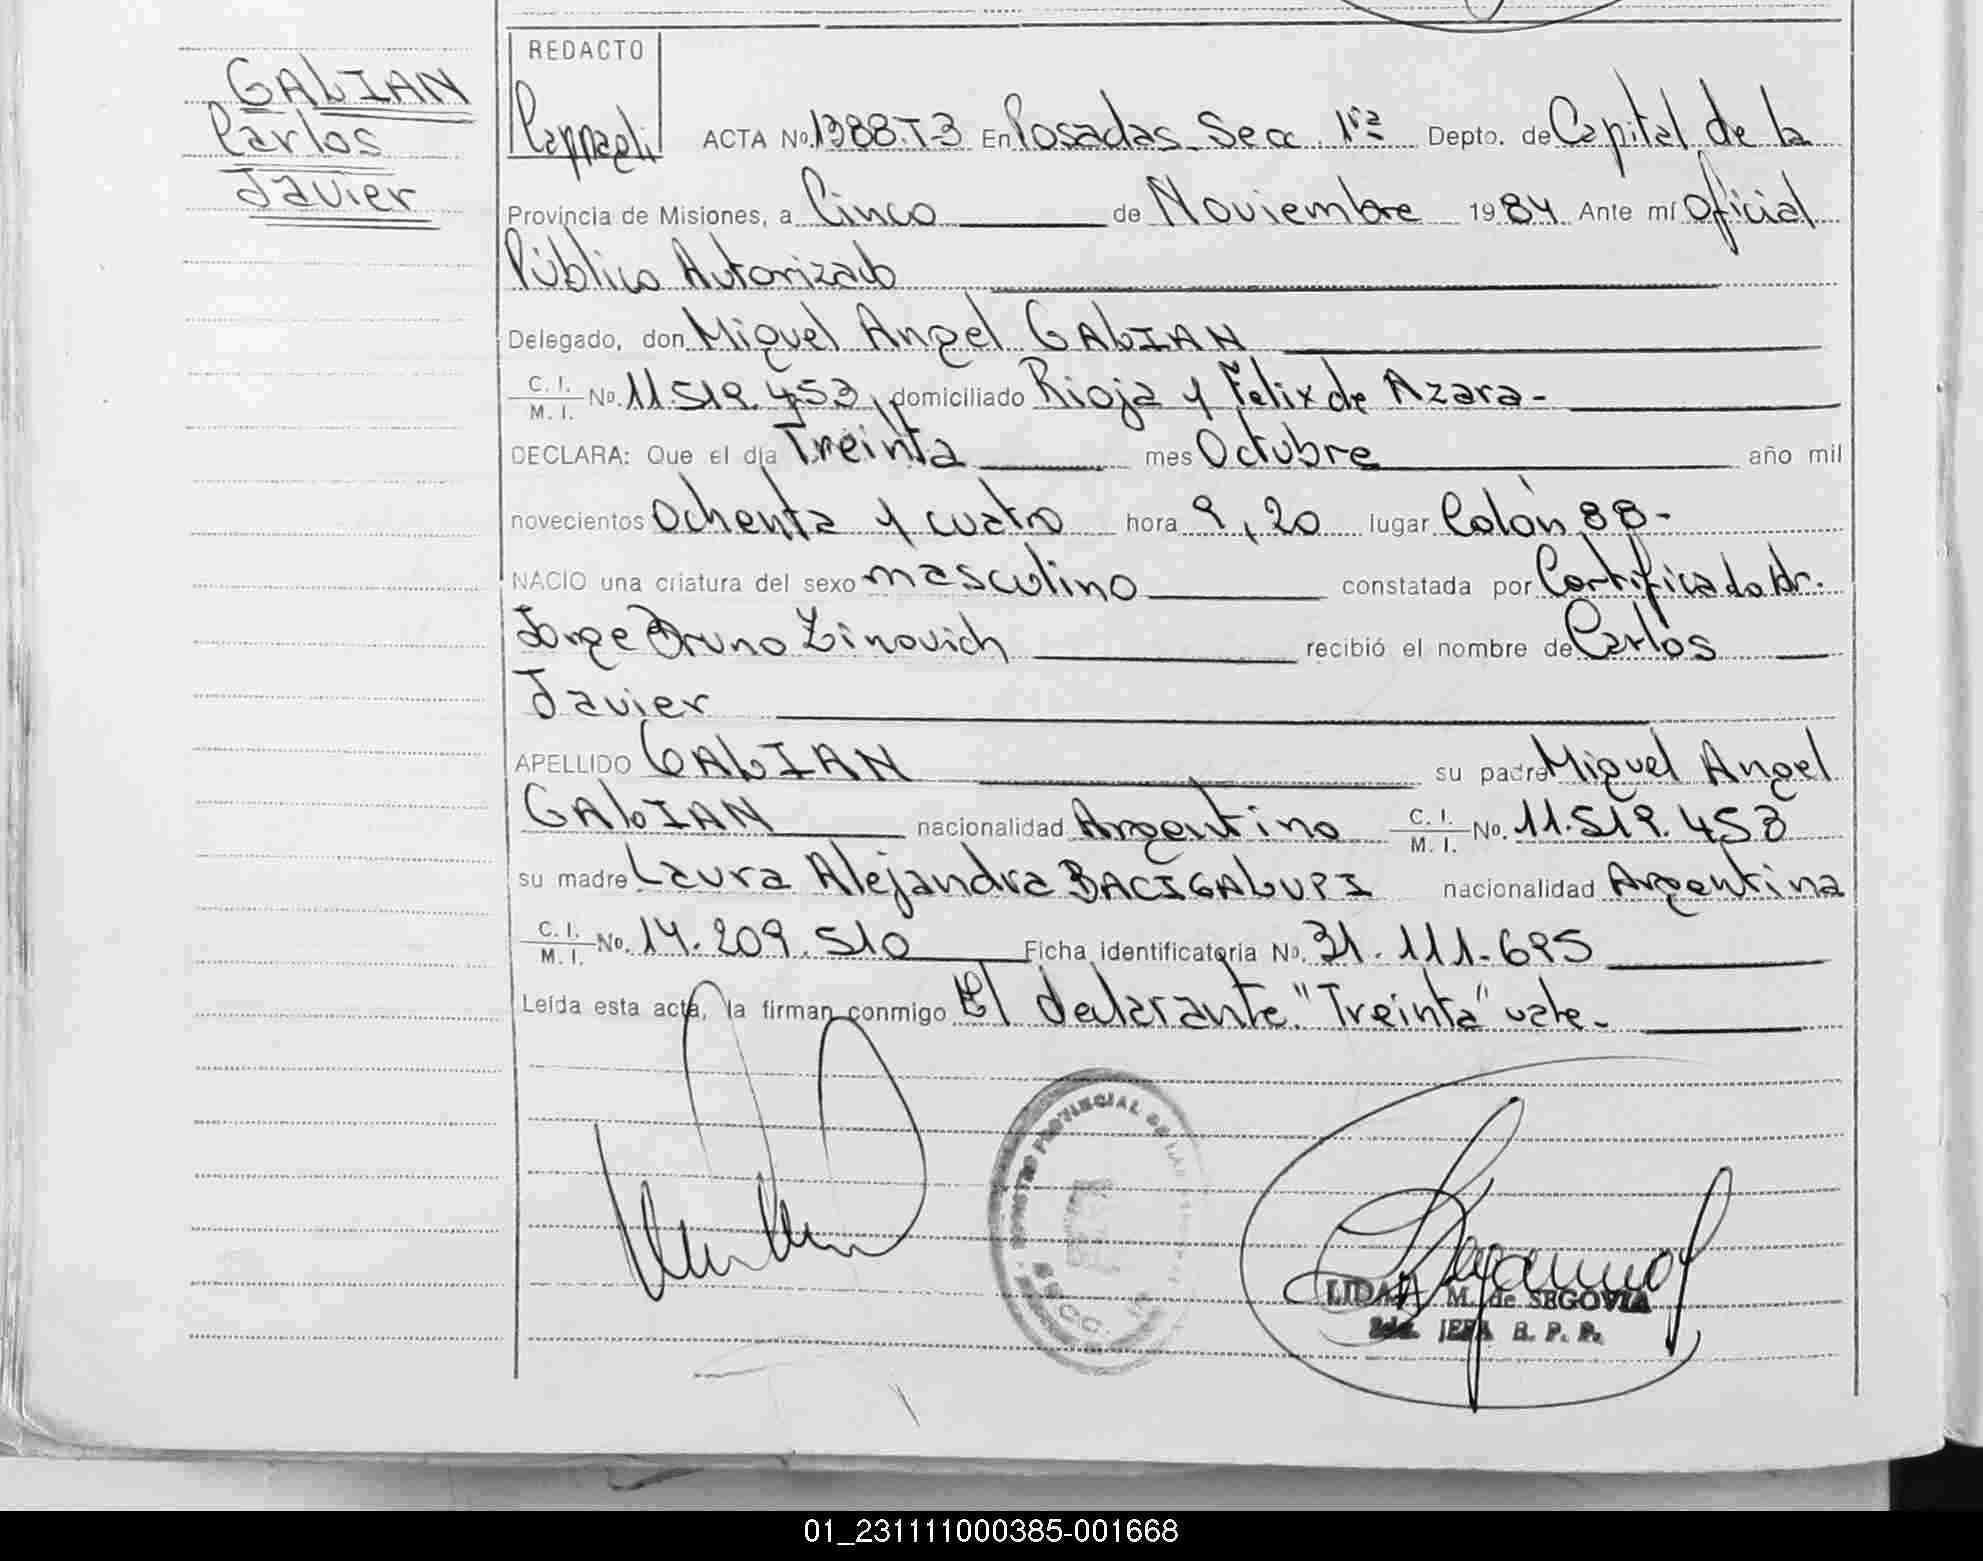 GALIAN
Carlos
Javier
REDACTO
ACTA No. 1388.T-3 En Posadas Secc. 1ra Depto. de Capital de la
Provincia de Misiones, a Cinco de Noviembre 1984 Ante mí Oficial
Público Autorizado
Delegado, don Miguel Angel GALIAN
C. I.
M. I. No. 11.519.453, domiciliado Rioja y Felix de Azara-
DECLARA: Que el día Treinta mes Octubre año mil
novecientos Ochenta y cuatro hora 9,20 lugar Colón 88-
NACIO una criatura del sexo masculino constatada por Certificado Dr.
Jorge Bruno Zinovich recibió el nombre de Carlos
Javier
APELLIDO GALIAN su padre Miguel Angel
GALIAN nacionalidad Argentino C. I. M. I. No. 11.519.453
su madre Laura Alejandra BACIGALUPI nacionalidad Argentina
C. I.
M. I. No. 14.209.510 Ficha identificatoria No. 31.111.695
Leída esta acta, la firman conmigo El declarante. "Treinta" vale-
REGISTRO PROVINCIAL DE LAS
SECC. 1a
LIDA M. de SEGOVIA
JEFA R. P. P.
01_231111000385-001668